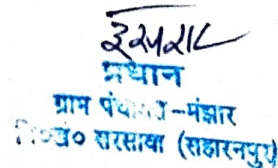 इसरार
प्रधान
ग्राम पंचायत-मंझार
वि०ख० सरसावा (सहारनपुर)